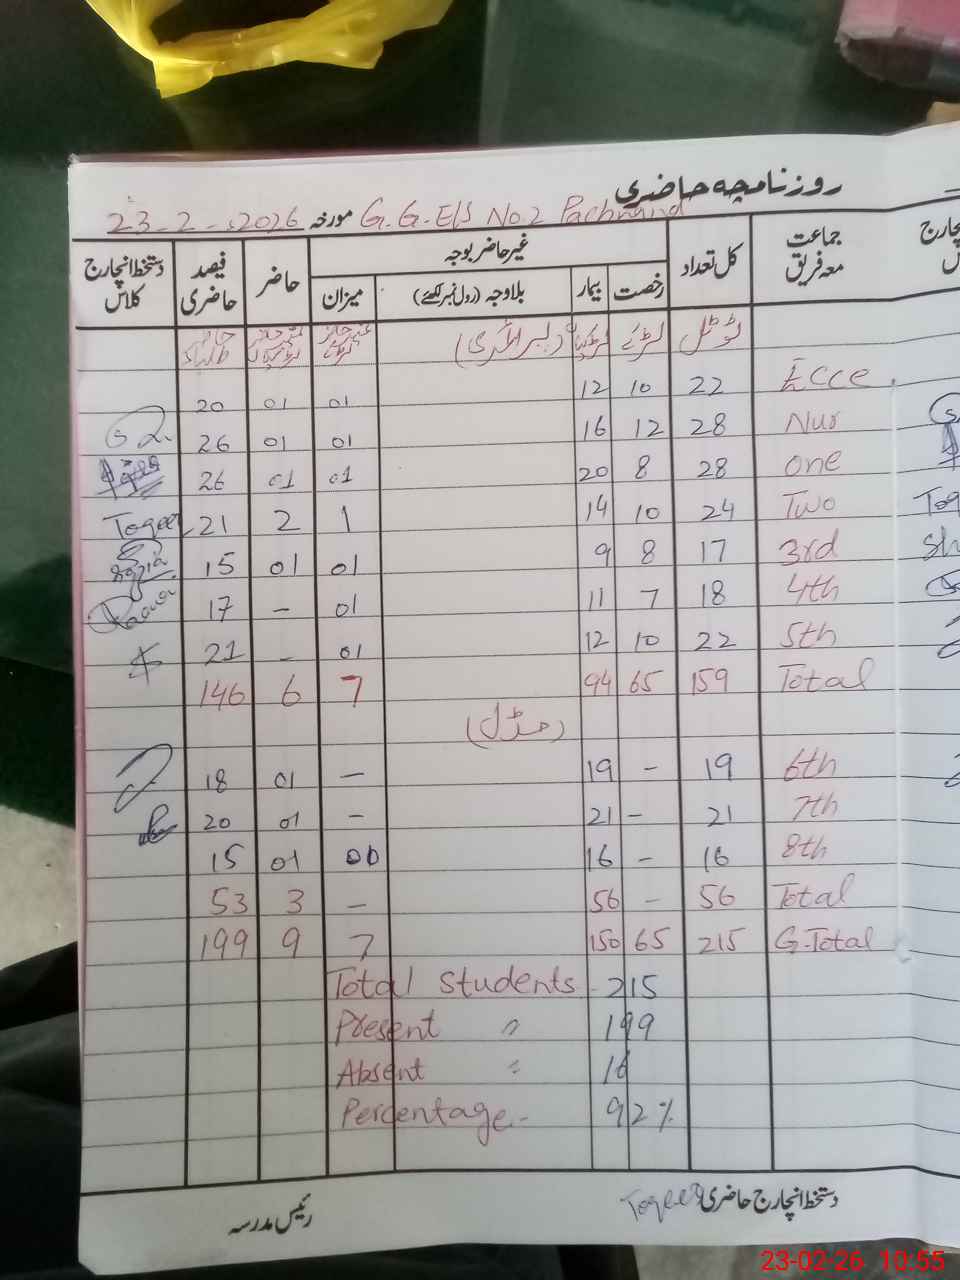 روزنامچہ حاضری
G.G.E/S No.2 Pachnand مورخہ 23-2-2026
جماعت معہ فریق کل تعداد غیر حاضر بوجہ حاضر فیصد حاضری دستخط انچارج کلاس
رخصت بیمار بلاوجہ (رول نمبر لکھئے) میزان
ٹوٹل لڑکے لڑکیاں (پرائمری) غیر حاضر لڑکے
Ecce 22 10 12 01 01 20
Nur 28 12 16 01 01 26
one 28 8 20 01 01 26
Two 24 10 14 1 2 21 Toqeer
3rd 17 8 9 01 01 15
4th 18 7 11 01 - 17
5th 22 10 12 01 - 21
Total 159 65 94 7 6 146
(مڈل)
6th 19 - 19 - 01 18
7th 21 - 21 - 01 20
8th 16 - 16 00 01 15
Total 56 - 56 - 3 53
G.Total 215 65 150 7 9 199
Total Students - 215
Present " 199
Absent " 16
Percentage - 92%
دستخط انچارج حاضری Toqeer رئیس مدرسہ
23-02-26 10:55